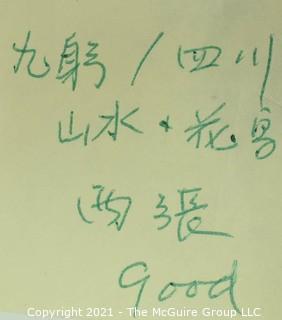 九躬 / 四川
山水・花鳥
两張
Good
Copyright 2021 - The McGuire Group LLC